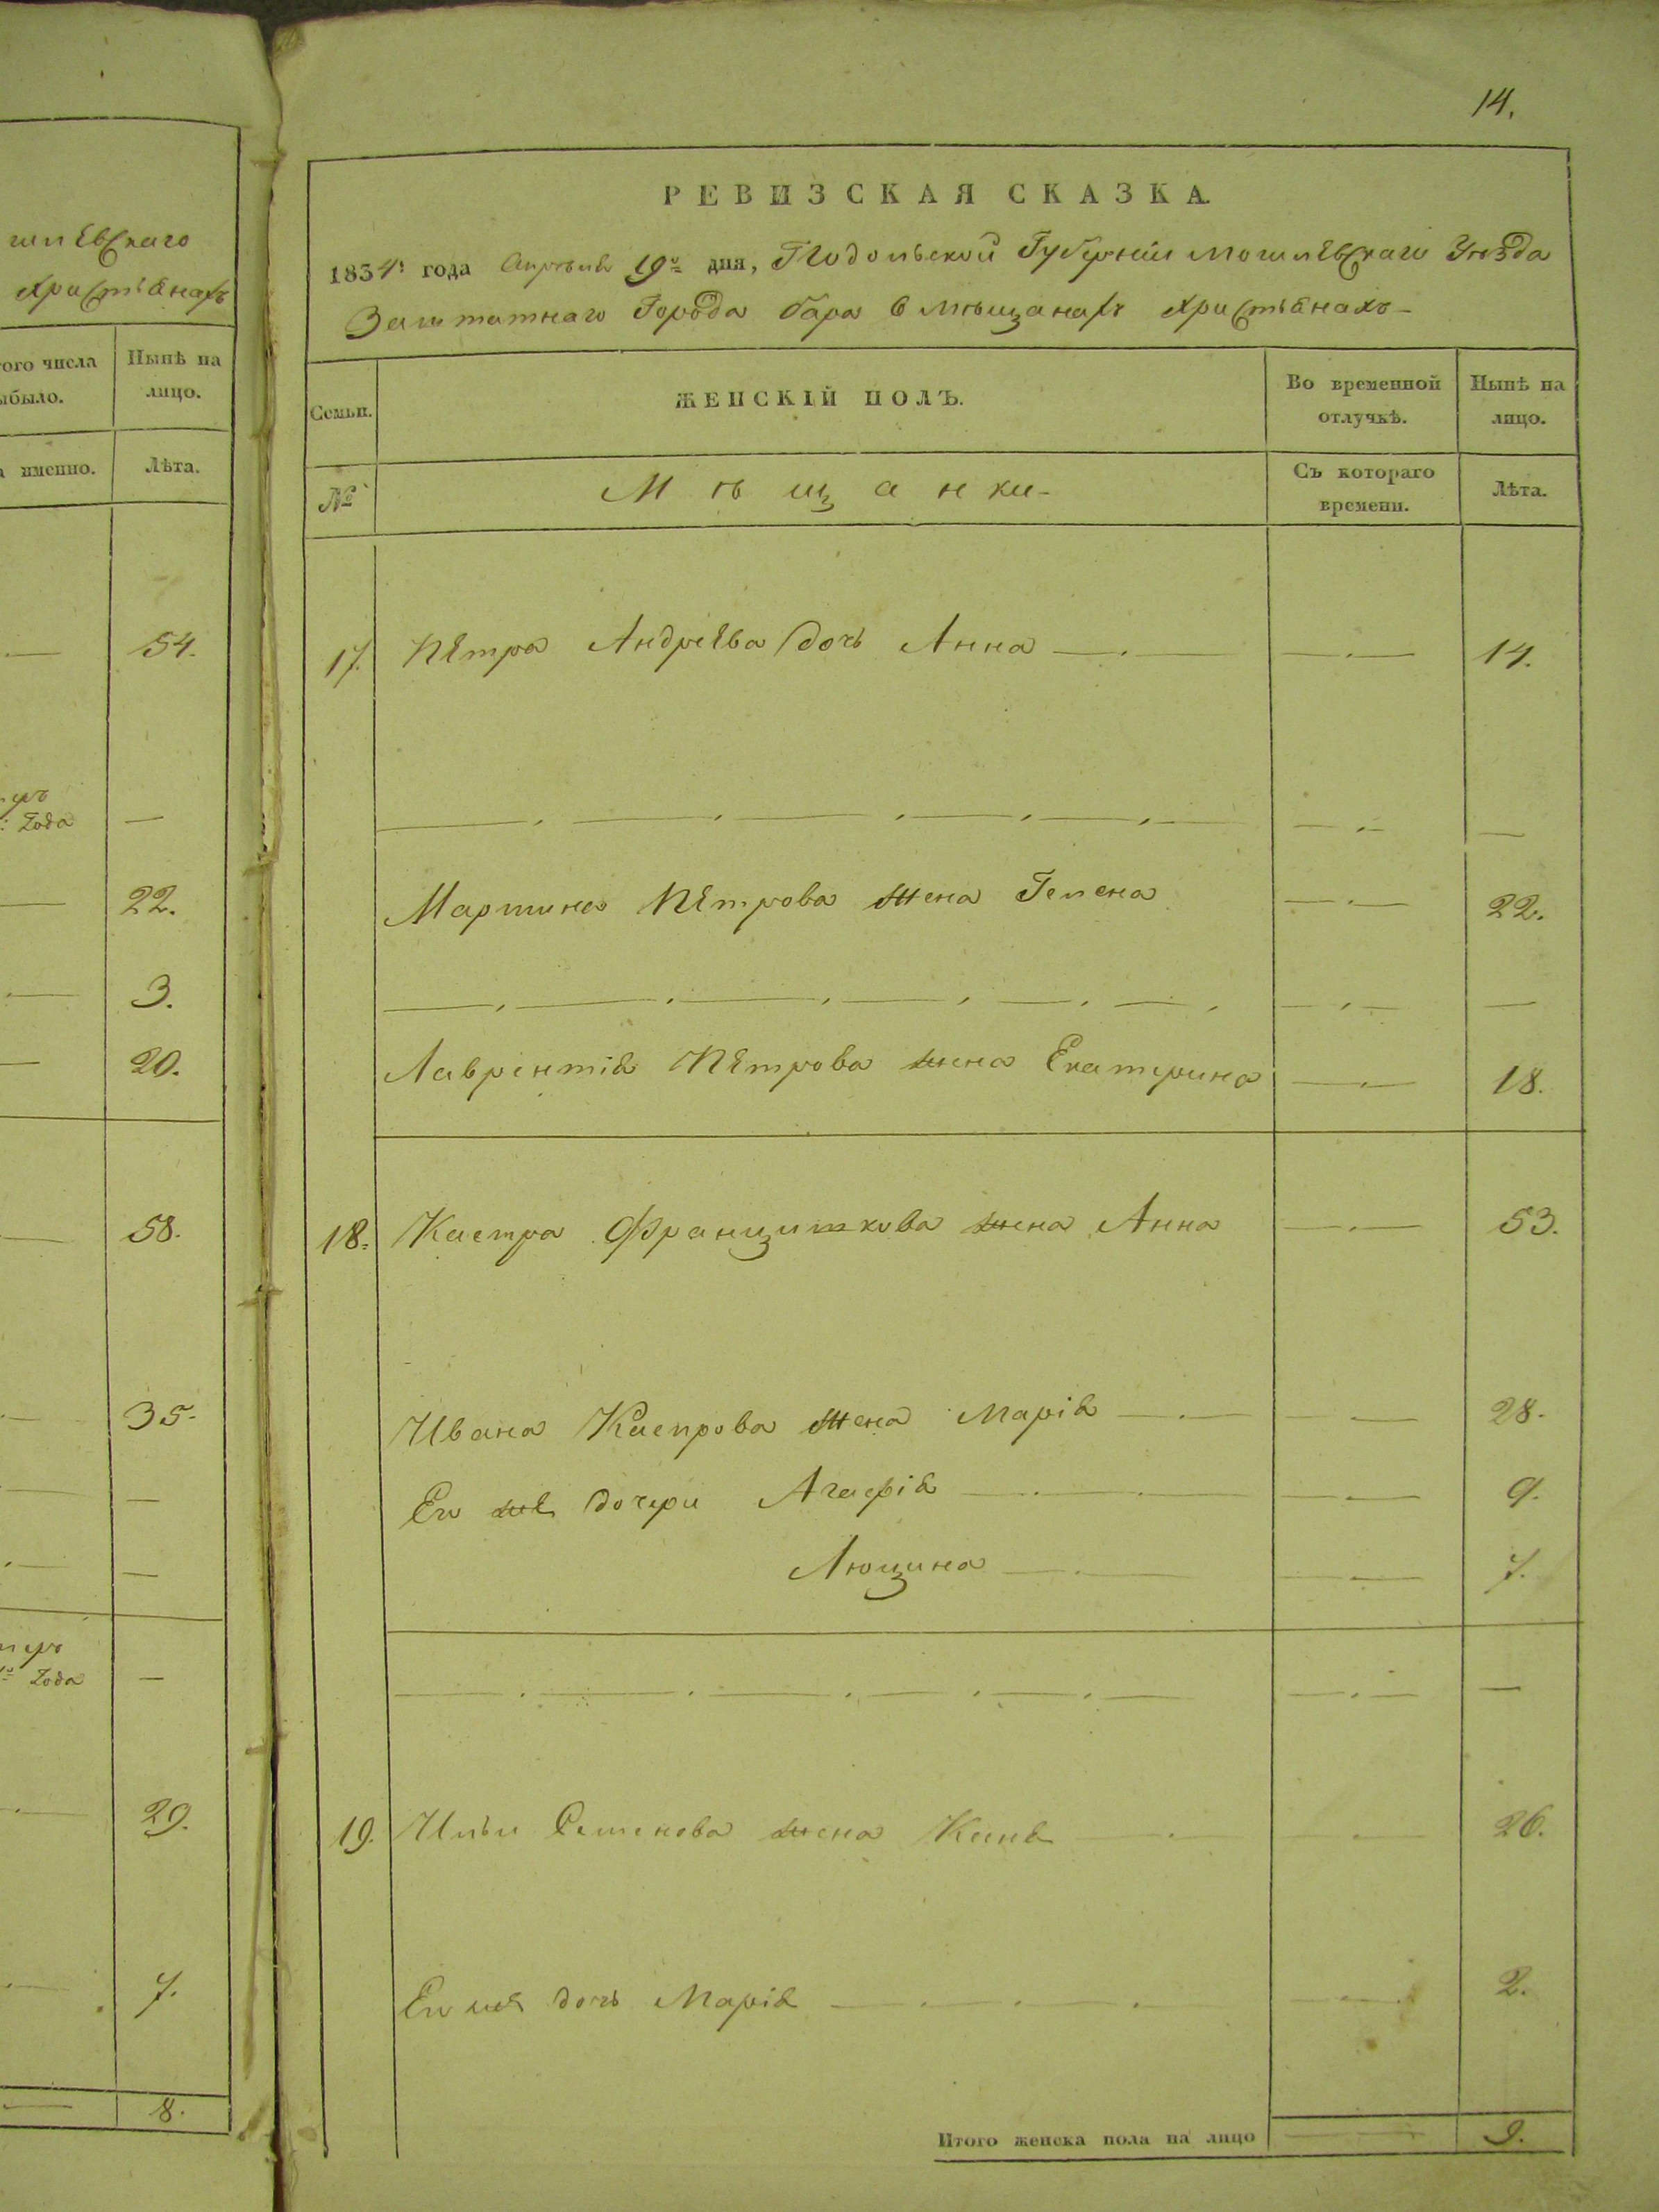 шлевскаго
христіянахъ
того числа
Нынѣ на
было.
лицо.
а именно.
Лѣта.
54.
года
22.
3.
20.
58.
35.
года
29.
7.
8.
14.
РЕВИЗСКАЯ СКАЗКА.
1834. года Апреля 19го дня, Подольской Губерніи Могилевскаго Уѣзда
Заштатнаго Города бара в мѣщанахъ христіянахъ
Семьи.
ЖЕНСКІЙ ПОЛЪ.
Во временной отлучкѣ.
Нынѣ на лицо.
№
Мѣщанки
Съ котораго времени.
Лѣта.
17. Петра Андреева дочь Анна 14.
Мартина Петрова жена Гелена 22.
Лаврентія Петрова жена Екатерина 18.
18. Каспра Францишкова жена Анна 53.
Ивана Каспрова жена Марія 28.
Ею же дочери Агафія 9.
Люцина 7.
19. Ильи Семенова жена 26.
Ею же дочь Марія 2.
Итого женска пола на лицо 9.